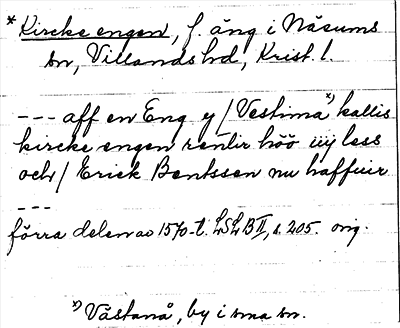 * Kircke engen, f. äng i Näsums
sn, Villands hd, Krist. l.
--- aff en Eng y / Vestina x) kallis
kircke engen renlir höö iiij less
och / Erick Bentssen nu haffuir
---
förra delen av 1570-t. LSLB II, s. 205. orig.
x) Västanå, by i sma sn.